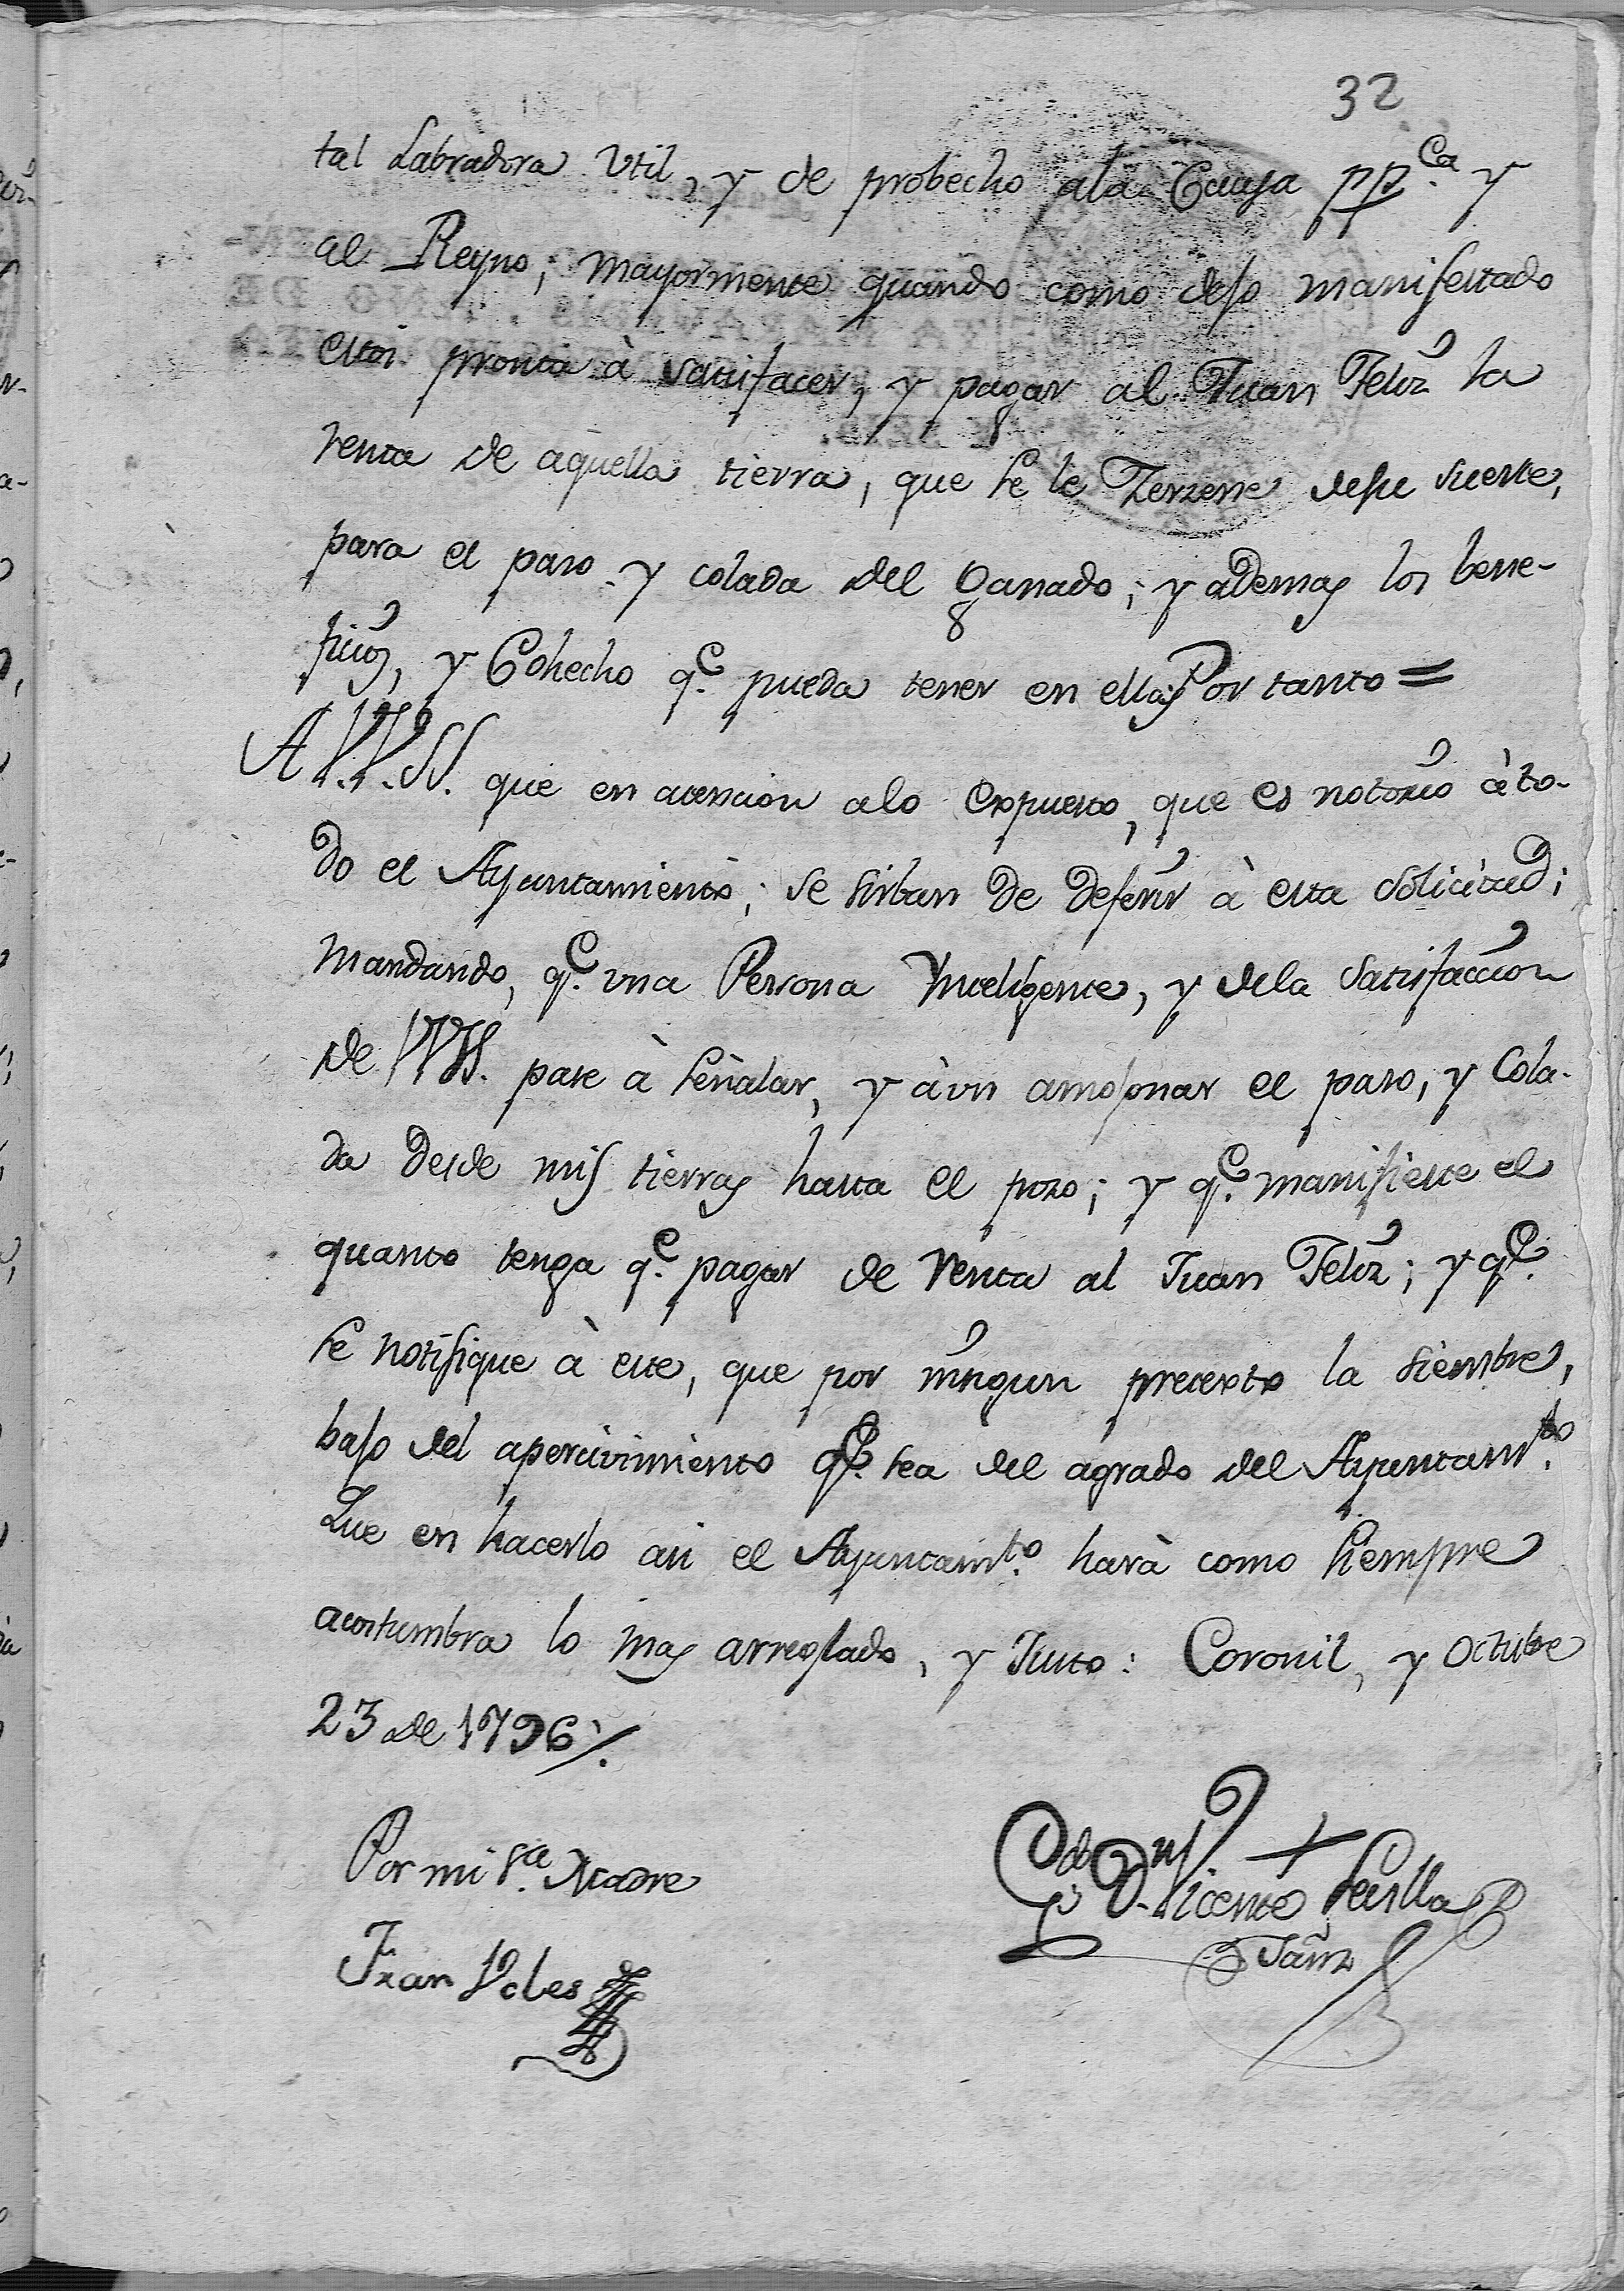 32
tal Labradora Vtil, y de probecho ala Causa pp.ca y
al Reyno; mayormente quando como dejo manifestado
estoi pronta à satisfacer, y pagar al Juan Feliz la
renta de aquella tierra, que se le Zerzene desu suerte,
para el paso y colada del Ganado; y ademas los bene-
ficios, y Cohecho q.e pueda tener en ella; Por tanto =
A V.V.SS. que en atencion alo expuesto, que es notorio àto-
do el Ayuntamiento; se sirban de deferir à esta solicitud;
mandando, q.e vna Persona Ynteligente, y dela satisfaccion
de VVSS. pase à señalar, y àun amojonar el paso, y Cola-
da desde mis tierras hasta el pozo; y q.e manifieste el
quanto tenga q.e pagar de renta al Juan Feliz; y q.e
se notifique à este, que por ningun pretexto la siembre,
bajo del apercivimiento q.e sea del agrado del Ayuntam.to
Que en hacerlo asi el Ayuntam.to harà como siempre
acostumbra lo mas arreglado, y Justo: Coronil, y Octubre
23 de 1796 /.
Por mi S.ra Madre
Juan
D. Vicente Sevilla